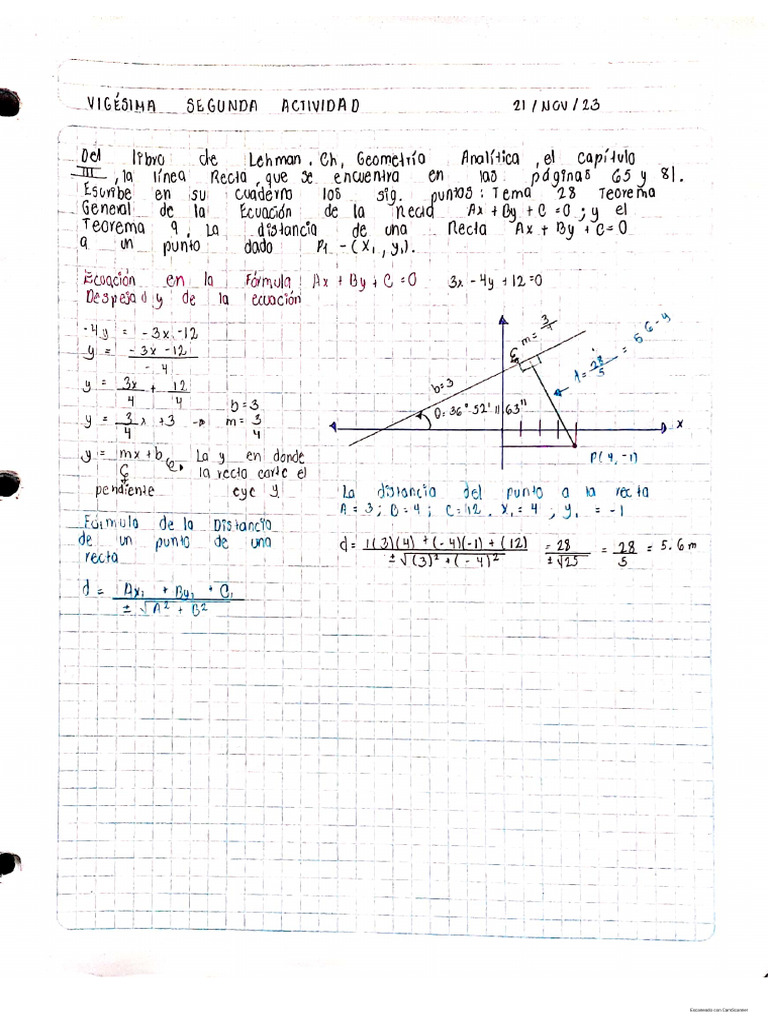 VIGÉSIMA SEGUNDA ACTIVIDAD 21/NOV/23
Del libro de Lehman. Ch, Geometría Analítica, el capítulo
III, la línea Recta, que se encuentra en las páginas 65 y 81.
Escribe en su cuaderno los sig. puntos: Tema 28 Teorema
General de la Ecuación de la Recta Ax + By + C = 0; y el
Teorema 9, La distancia de una Recta Ax + By + C = 0
a un punto dado P1 - (X1, y1).
Ecuación en la Fórmula: Ax + By + C = 0 3x - 4y + 12 = 0
Despejad y de la ecuación
-4y = -3x -12
y = -3x -12 / -4
y = 3x/4 + 12/4
b = 3
y = 3/4 x + 3 → m = 3/4
y = mx + b La y en donde
la recta corte el
pendiente eye y
m = 3/4
b = 3
A = 28/5 = 5 6 - y
θ = 36° 52' 11.63"
x
P(4, -1)
La distancia del punto a la recta
A = 3; B = 4; C = 12, X1 = 4; y1 = -1
d = 1(3)(4) + (-4)(-1) + (12) / ± √(3)² + (-4)² = 28 / ± √25 = 28/5 = 5.6 m
Fórmula de la Distancia
de un punto de una
recta
d = Ax1 + By1 + C1 / ± √A² + B²
Escaneado con CamScanner